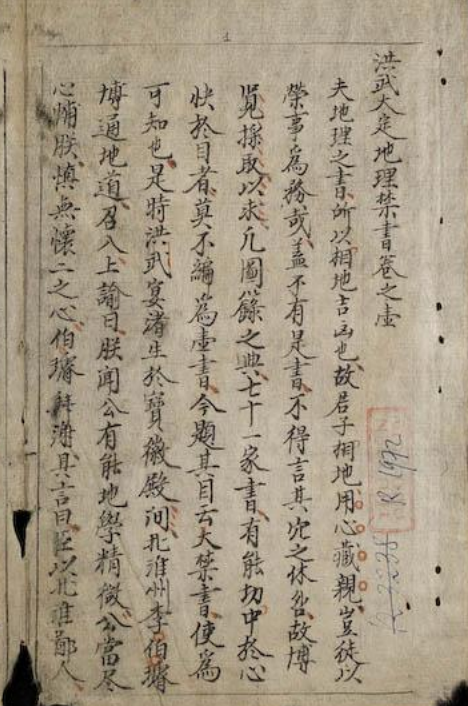 1
洪武大定地理禁書卷之壹
夫地理之書所以相地吉凶也故君子相地用心藏親豈徒以
榮事爲務哉盖不有是書不得言其穴之休咎故博
覓採取以求凡圖籙之典七十一家書有能切中於心
快於目者莫不編爲壹書今題其目云大禁書使爲
可知也是時洪武宴渚生於寶徽殿間北淮州李伯璿
博通地道召入上諭曰朕聞公有能地學精微公當尽
心輔朕慎無懷二之心伯璿拜謝具言曰臣以北淮鄙人
R.1992